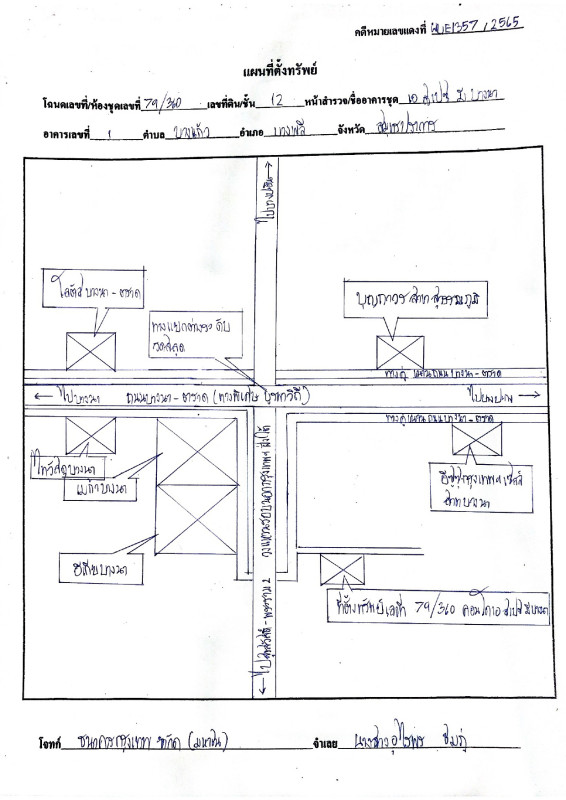 คดีหมายเลขแดงที่ ผบE1357/2565
แผนที่ตั้งทรัพย์
โฉนดเลขที่/ห้องชุดเลขที่ 79/360 เลขที่ดิน/ชั้น 12 หน้าสำรวจ/ชื่ออาคารชุด เอ สเปซ มี บางนา
อาคารเลขที่ 1 ตำบล บางแก้ว อำเภอ บางพลี จังหวัด สมุทรปราการ
ไปบางปะอิน
โลตัส บางนา - ตราด
บุญถาวร สาขา สุวรรณภูมิ
ทางแยกต่างระดับ
วัดสลุด
ทางคู่ขนานถนน บางนา - ตราด
ไปบางนา
ถนนบางนา - ตราด (ทางพิเศษ บูรพาวิถี)
ไปบางปะกง
ทางคู่ขนาน ถนนบางนา - ตราด
ไทวัสดุบางนา
เมกาบางนา
อีซูซุกรุงเทพฯ เซลส์
สาขาบางนา
วงแหวนรอบนอกกรุงเทพฯ ฝั่งใต้
อิเกียบางนา
ที่ตั้งทรัพย์ เลขที่ 79/360 คอนโด เอ สเปซ มี บางนา
ไปสุขสวัสดิ์ - พระราม 2
โจทก์ ธนาคารกรุงเทพ จำกัด (มหาชน) จำเลย นางสาว อุไรพร